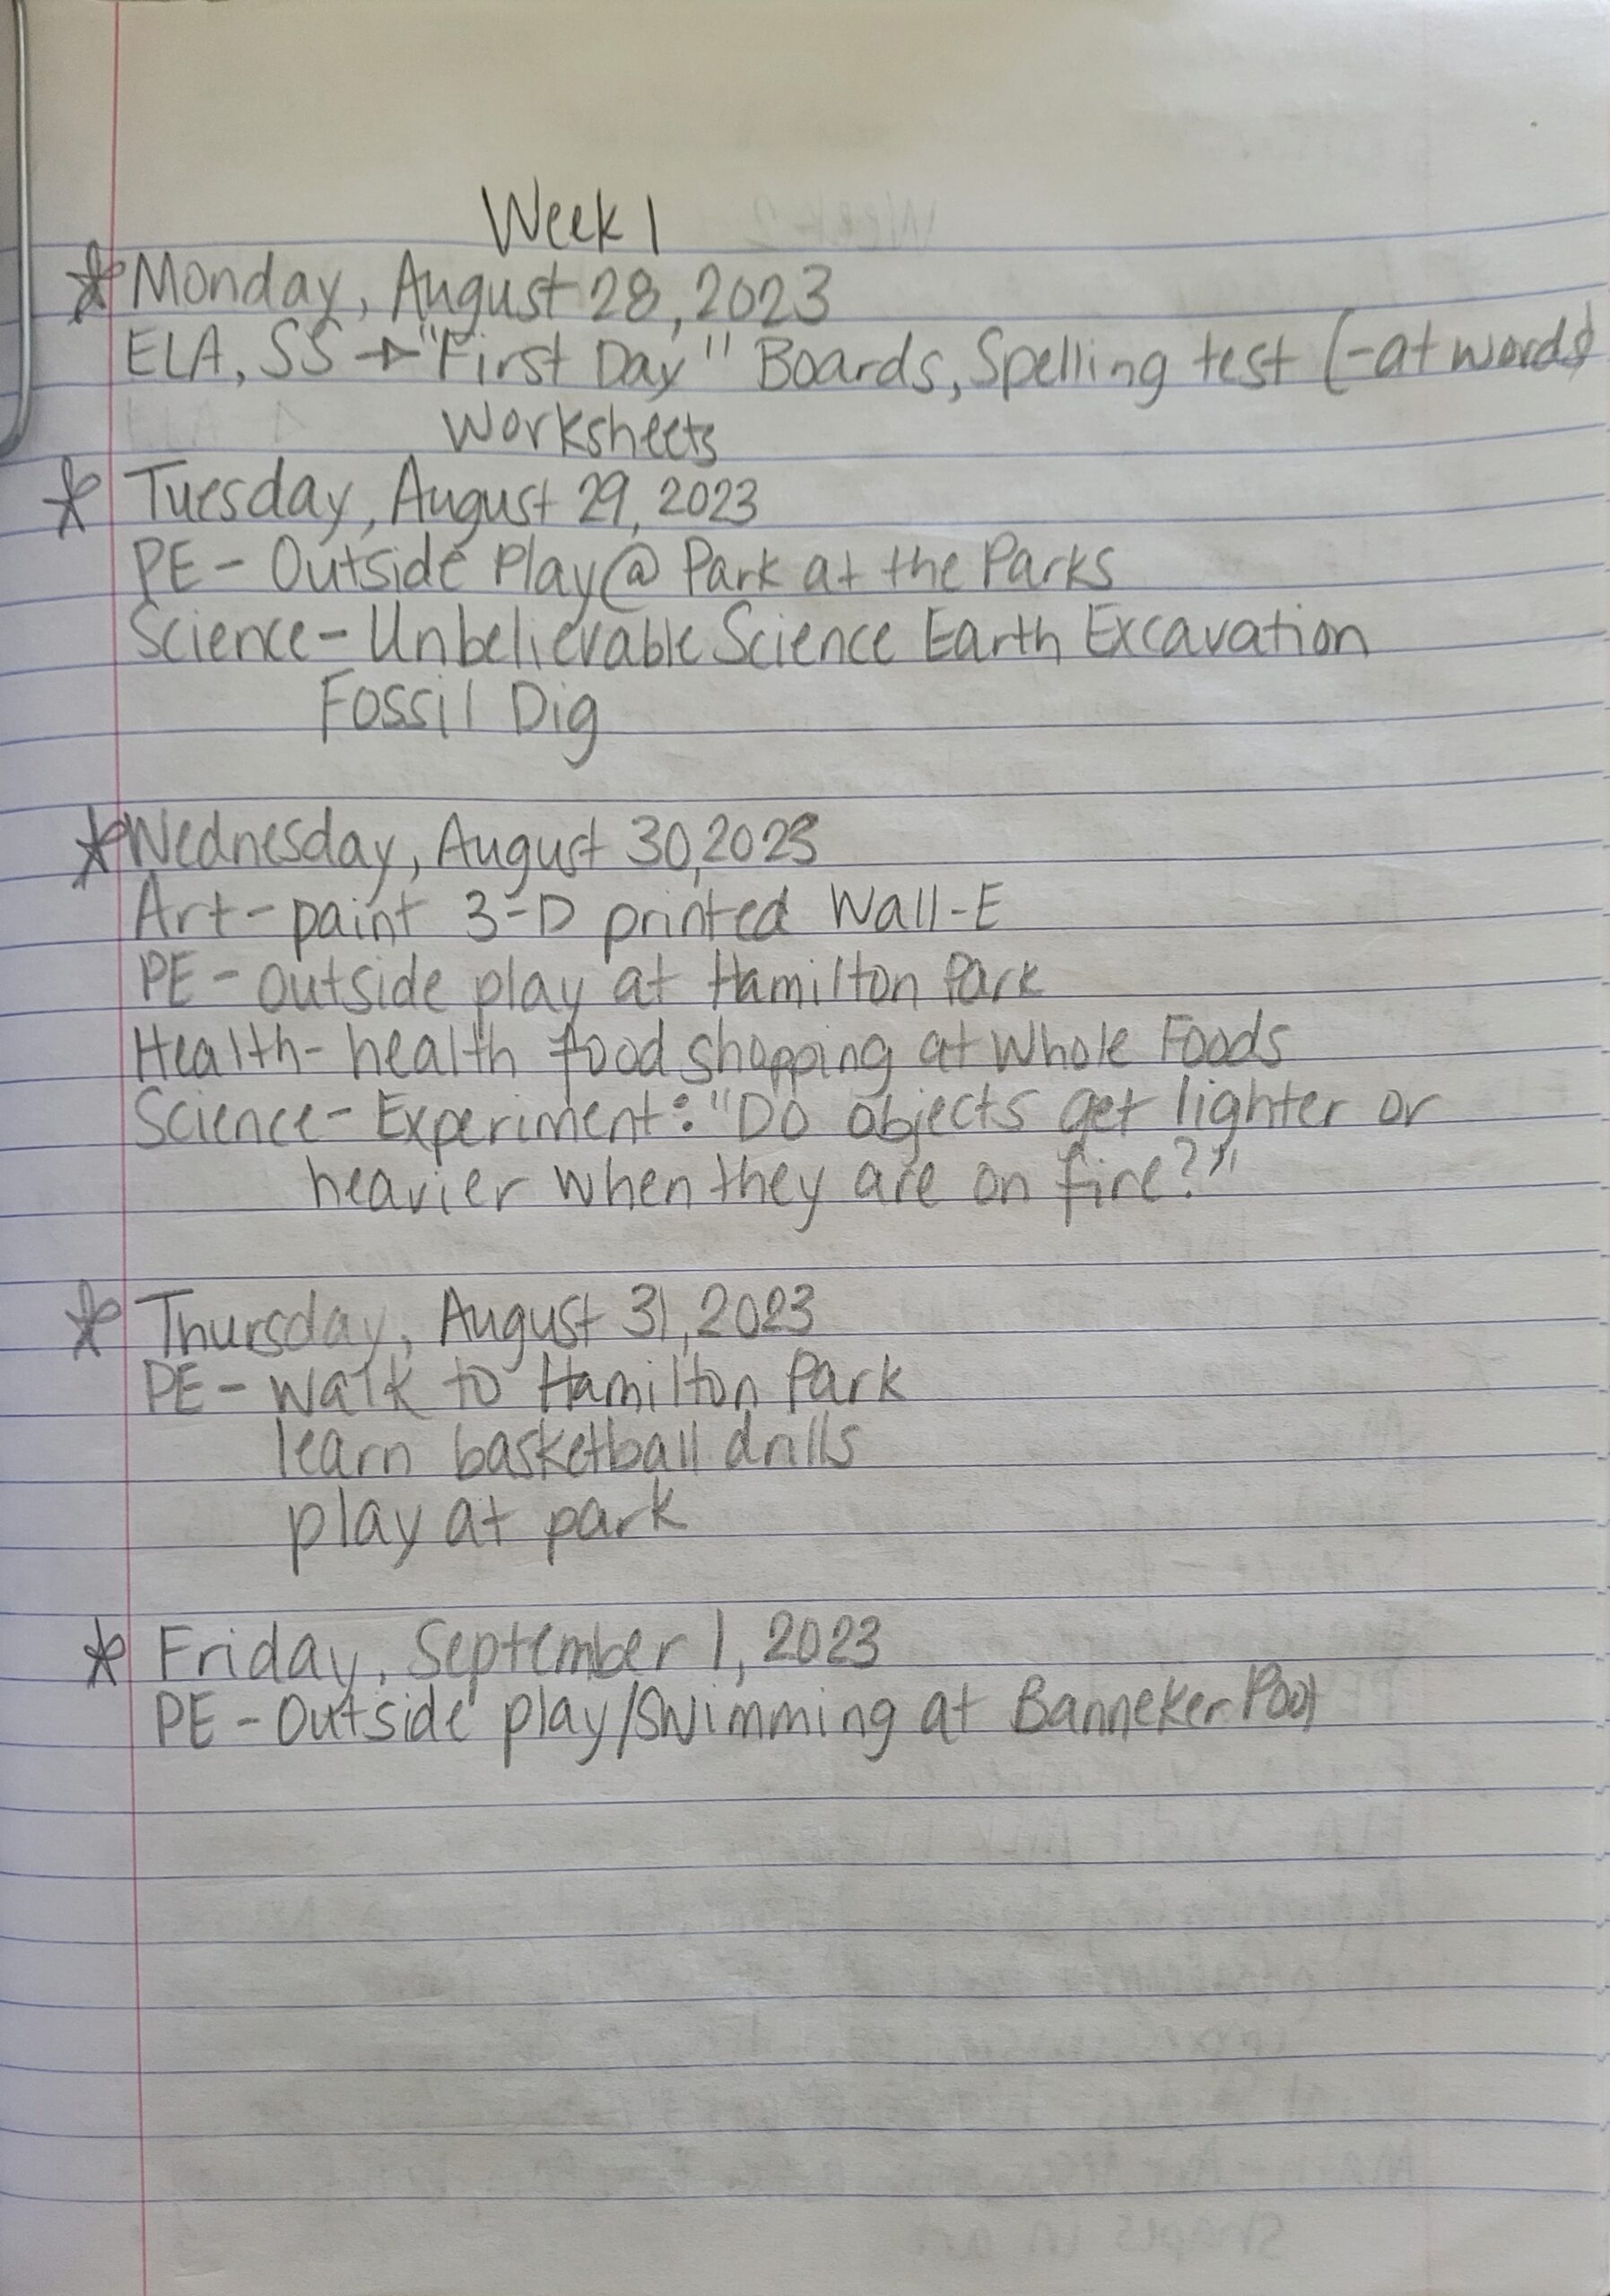 Week 1
* Monday, August 28, 2023
ELA, SS → "First Day" Boards, Spelling test (-at words)
Worksheets
* Tuesday, August 29, 2023
PE - Outside Play @ Park at the Parks
Science - Unbelievable Science Earth Excavation
Fossil Dig
* Wednesday, August 30, 2023
Art - paint 3-D printed Wall-E
PE - outside play at Hamilton Park
Health - health food shopping at Whole Foods
Science - Experiment: "Do objects get lighter or
heavier when they are on fire?"
* Thursday, August 31, 2023
PE - walk to Hamilton Park
learn basketball drills
play at park
* Friday, September 1, 2023
PE - Outside play/swimming at Banneker Pool